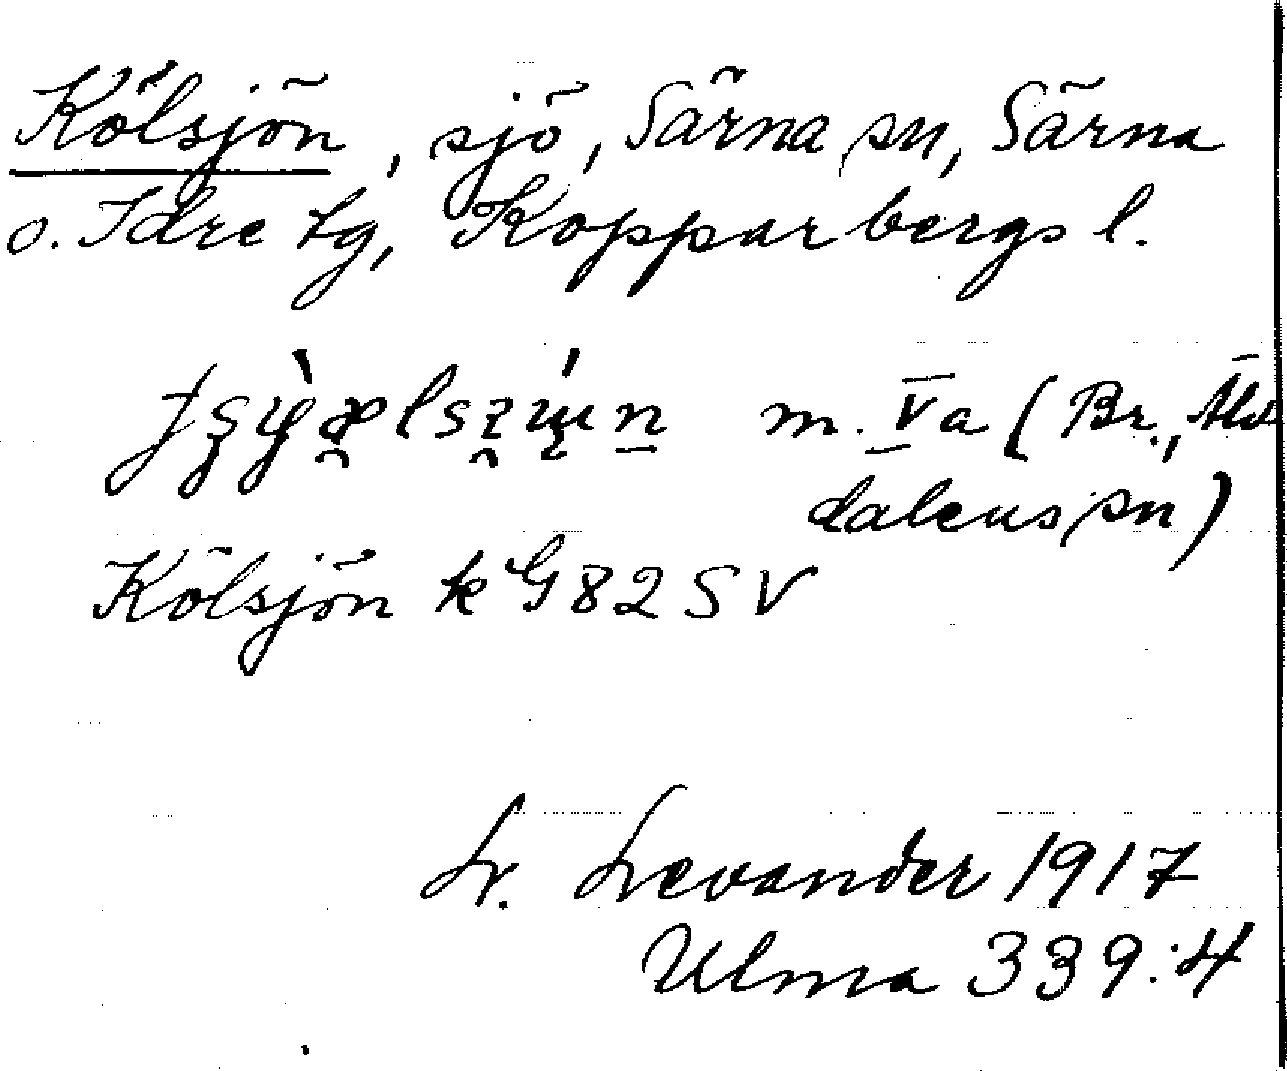 Kölsjön, sjö, Särna sn, Särna
o. Idre tg, Kopparbergs l.
m. Va (Br., Älv
dalens sn)
Kölsjön k G82SV
L. Levander 1917
Ulma 339:4